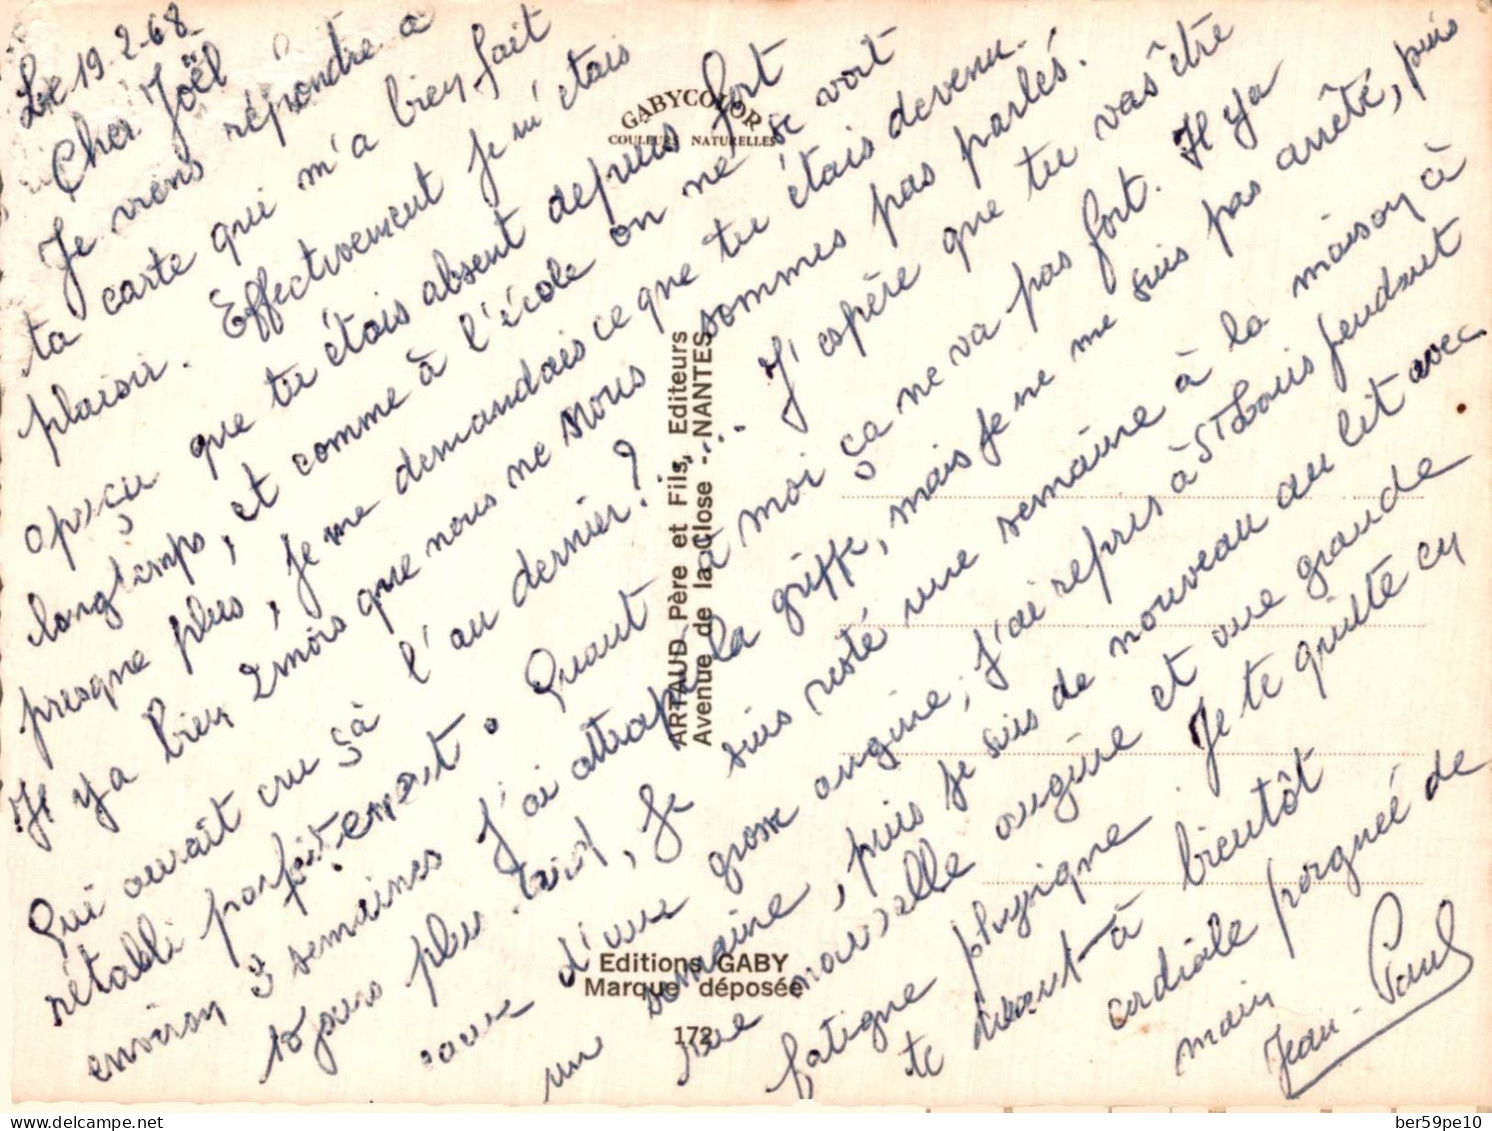 Le 19-2-68
Cher Joël
Je viens répondre à
ta carte qui m'a bien fait
plaisir. Effectivement je m'étais
aperçu que tu étais absent depuis fort
longtemps, et comme à l'école on ne se voit
presque plus, je me demandais ce que tu étais devenu.
Il y a bien 2 mois que nous ne nous sommes pas parlés.
Qui aurait cru çà à l'an dernier?... J'espère que tu vas être
rétabli parfaitement. Quant à moi ça ne va pas fort. Il y a
environ 3 semaines j'ai attrapé la griffe, mais je ne me suis pas arrêté, puis
10 jours plus tard, je suis resté une semaine à la maison à
cause d'une grosse angine; j'ai repris à St Louis pendant
une semaine, puis je suis de nouveau au lit avec
une nouvelle angine et une grande
fatigue physique. Je te quitte en
te disant à bientôt
cordiale poignée de
main
Jean-Paul
GABYCOLOR
COULEURS NATURELLES
ARTAUD Père et Fils, Editeurs
Avenue de la Close - NANTES
Editions GABY
Marque déposée
172
delcampe.net
ber59pe10